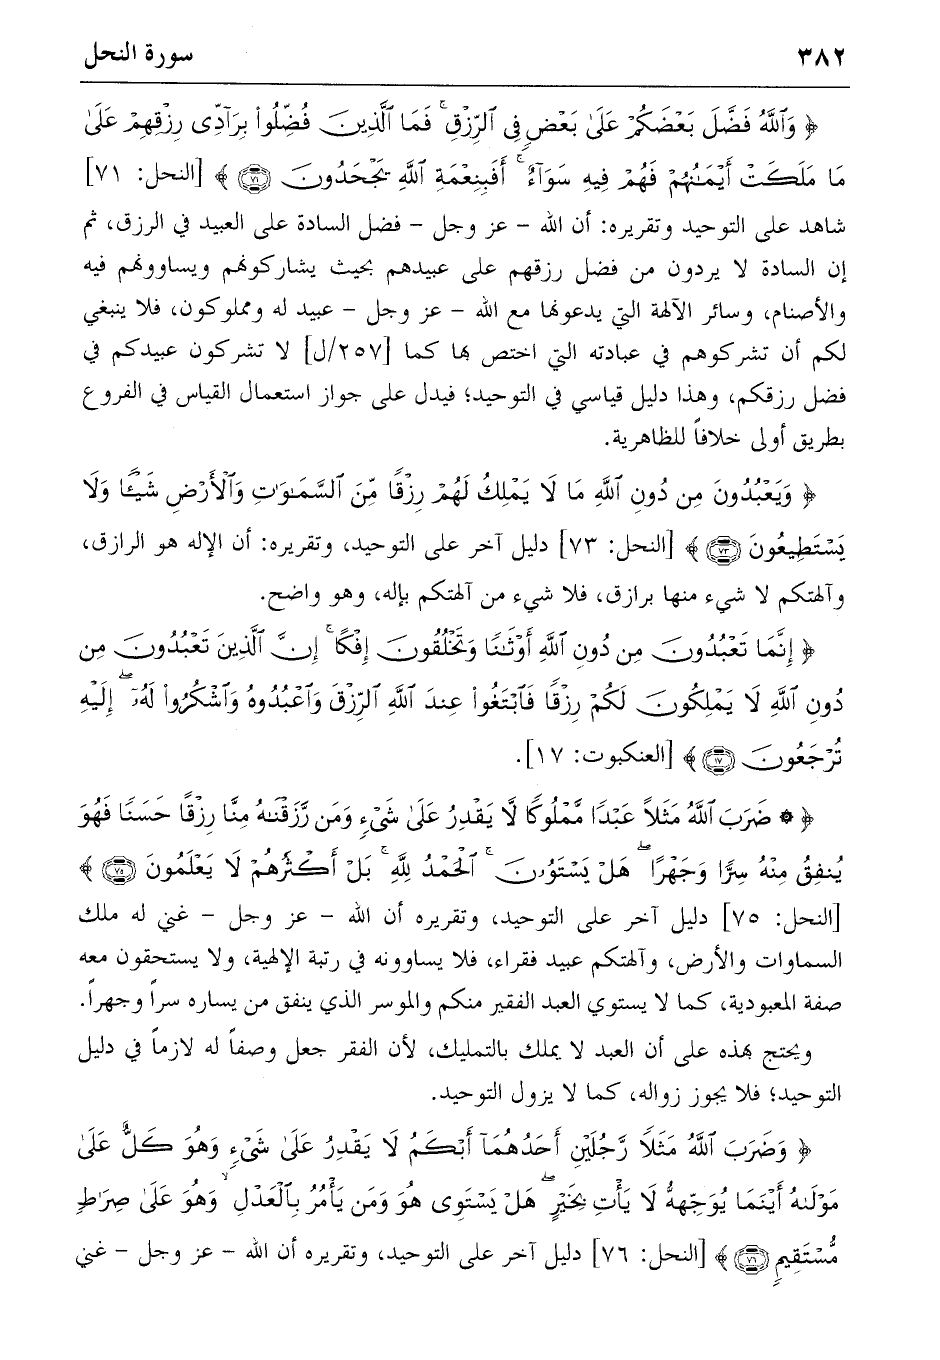 ٣٨٢ سورة النحل
﴿ وَٱللَّهُ فَضَّلَ بَعْضَكُمْ عَلَىٰ بَعْضٍ فِى ٱلرِّزْقِ ۚ فَمَا ٱلَّذِينَ فُضِّلُوا۟ بِرَآدِّى رِزْقِهِمْ عَلَىٰ
مَا مَلَكَتْ أَيْمَـٰنُهُمْ فَهُمْ فِيهِ سَوَآءٌ ۚ أَفَبِنِعْمَةِ ٱللَّهِ يَجْحَدُونَ ۝٧١ ﴾ [النحل: ٧١]
شاهد على التوحيد وتقريره: أن الله – عز وجل – فضل السادة على العبيد في الرزق، ثم
إن السادة لا يردون من فضل رزقهم على عبيدهم بحيث يشاركونهم ويساوونهم فيه
والأصنام، وسائر الآلهة التي يدعونها مع الله – عز وجل – عبيد له ومملوكون، فلا ينبغي
لكم أن تشركوهم في عبادته التي اختص بها كما [٢٥٧/ل] لا تشركون عبيدكم في
فضل رزقكم، وهذا دليل قياسي في التوحيد؛ فيدل على جواز استعمال القياس في الفروع
بطريق أولى خلافاً للظاهرية.
﴿ وَيَعْبُدُونَ مِن دُونِ ٱللَّهِ مَا لَا يَمْلِكُ لَهُمْ رِزْقًا مِّنَ ٱلسَّمَـٰوَٰتِ وَٱلْأَرْضِ شَيْـًٔا وَلَا
يَسْتَطِيعُونَ ۝٧٣ ﴾ [النحل: ٧٣] دليل آخر على التوحيد، وتقريره: أن الإله هو الرازق،
وآلهتكم لا شيء منها برازق، فلا شيء من آلهتكم بإله، وهو واضح.
﴿ إِنَّمَا تَعْبُدُونَ مِن دُونِ ٱللَّهِ أَوْثَـٰنًا وَتَخْلُقُونَ إِفْكًا ۚ إِنَّ ٱلَّذِينَ تَعْبُدُونَ مِن
دُونِ ٱللَّهِ لَا يَمْلِكُونَ لَكُمْ رِزْقًا فَٱبْتَغُوا۟ عِندَ ٱللَّهِ ٱلرِّزْقَ وَٱعْبُدُوهُ وَٱشْكُرُوا۟ لَهُۥٓ ۖ إِلَيْهِ
تُرْجَعُونَ ۝١٧ ﴾ [العنكبوت: ١٧].
﴿ ۞ ضَرَبَ ٱللَّهُ مَثَلًا عَبْدًا مَّمْلُوكًا لَّا يَقْدِرُ عَلَىٰ شَىْءٍ وَمَن رَّزَقْنَـٰهُ مِنَّا رِزْقًا حَسَنًا فَهُوَ
يُنفِقُ مِنْهُ سِرًّا وَجَهْرًا ۖ هَلْ يَسْتَوُۥنَ ۚ ٱلْحَمْدُ لِلَّهِ ۚ بَلْ أَكْثَرُهُمْ لَا يَعْلَمُونَ ۝٧٥ ﴾
[النحل: ٧٥] دليل آخر على التوحيد، وتقريره أن الله – عز وجل – غني له ملك
السماوات والأرض، وآلهتكم عبيد فقراء، فلا يساوونه في رتبة الإلهية، ولا يستحقون معه
صفة المعبودية، كما لا يستوي العبد الفقير منكم والموسر الذي ينفق من يساره سراً وجهراً.
ويحتج بهذه على أن العبد لا يملك بالتمليك، لأن الفقر جعل وصفاً له لازماً في دليل
التوحيد؛ فلا يجوز زواله، كما لا يزول التوحيد.
﴿ وَضَرَبَ ٱللَّهُ مَثَلًا رَّجُلَيْنِ أَحَدُهُمَآ أَبْكَمُ لَا يَقْدِرُ عَلَىٰ شَىْءٍ وَهُوَ كَلٌّ عَلَىٰ
مَوْلَىٰهُ أَيْنَمَا يُوَجِّههُّ لَا يَأْتِ بِخَيْرٍ ۖ هَلْ يَسْتَوِى هُوَ وَمَن يَأْمُرُ بِٱلْعَدْلِ ۙ وَهُوَ عَلَىٰ صِرَٰطٍ
مُّسْتَقِيمٍ ۝٧٦ ﴾ [النحل: ٧٦] دليل آخر على التوحيد، وتقريره أن الله – عز وجل – غني